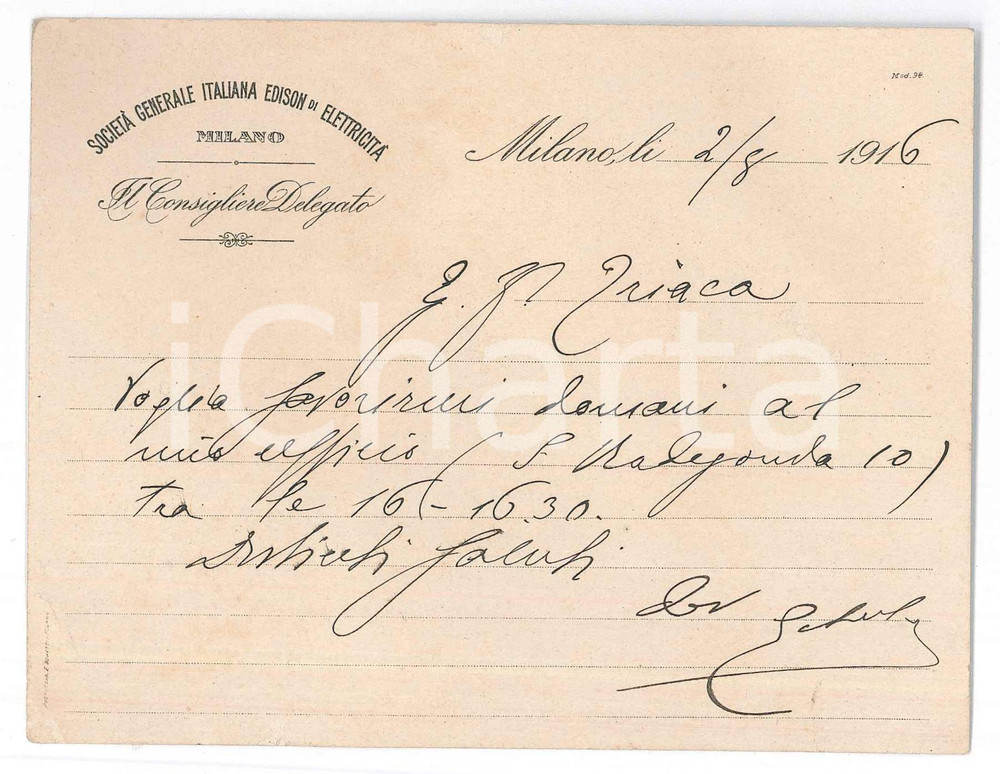 Mod. 98.
SOCIETÀ GENERALE ITALIANA EDISON DI ELETTRICITÀ
MILANO
Il Consigliere Delegato
Milano, li 2/8 1916
E. F. Triaca
Voglia favorirmi domani al
mio ufficio (S. Radegonda 10)
tra le 16 - 16.30.
Distinti saluti
iCharta